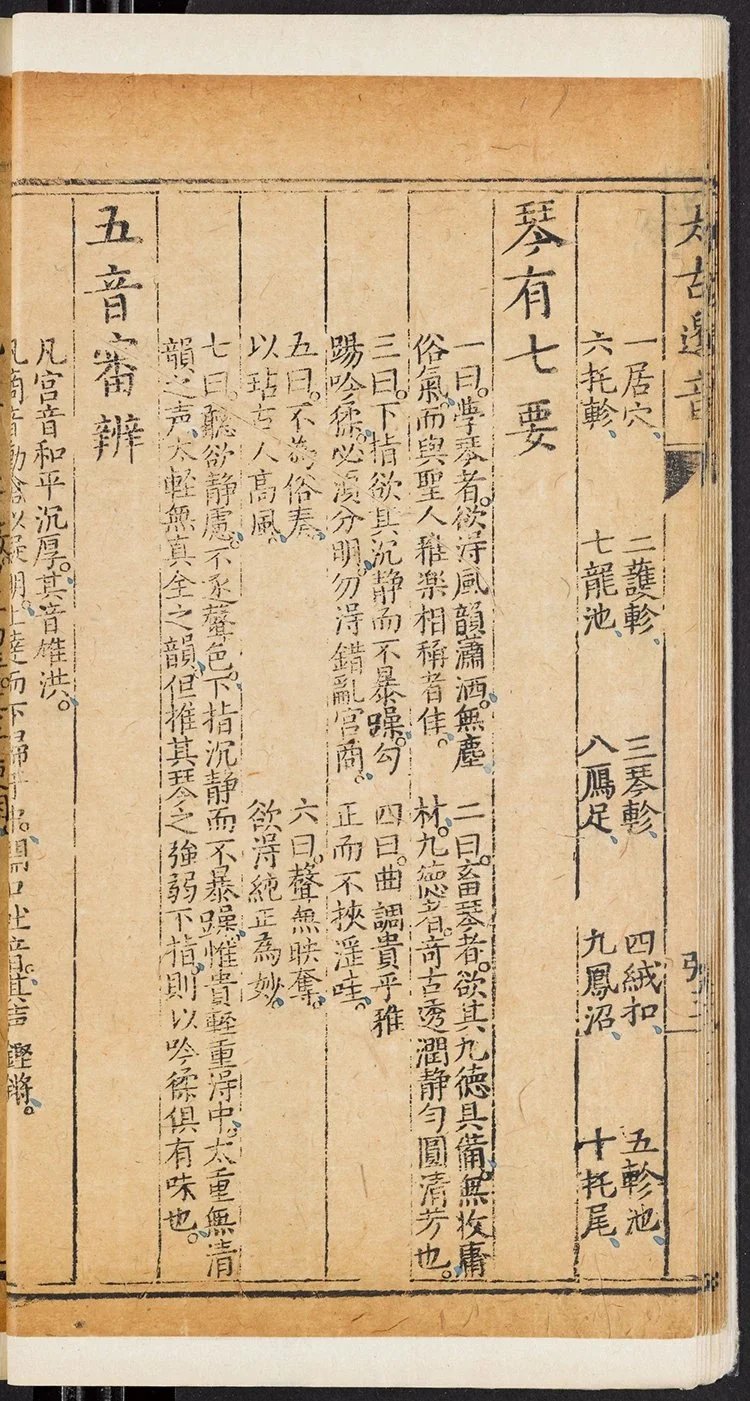 太古遺音
一居穴、
二護軫、
三琴軫、
四絨扣、
五軫池、
六托軫、
七龍池、
八鴈足、
九鳳沼、
十托尾、
琴有七要
一曰。學琴者。欲得風韻瀟洒。無塵
俗氣。而與聖人雅楽相稱者佳。
二曰。畜琴者。欲其九德具備。無收庸
材。九德者。奇古透潤静匀圓清芳也。
三曰。下指欲其沉静而不暴躁。勾
踢吟猱。必湏分明。勿淂錯亂宮商。
四曰。曲調貴乎雅
正而不挾滛哇。
五曰。不為俗奏。
以玷古人高風。
六曰。聲無映奪。
欲淂純正為妙。
七曰。聽欲静慮。不逐聲色。下指沉静而不暴躁。惟貴軽重淂中。太重無清
韻之声、太軽無真全之韻、但推其琴之強弱下指。則以吟猱俱有味也。
五音審辨
凡宮音和平沉厚。其音雄洪。